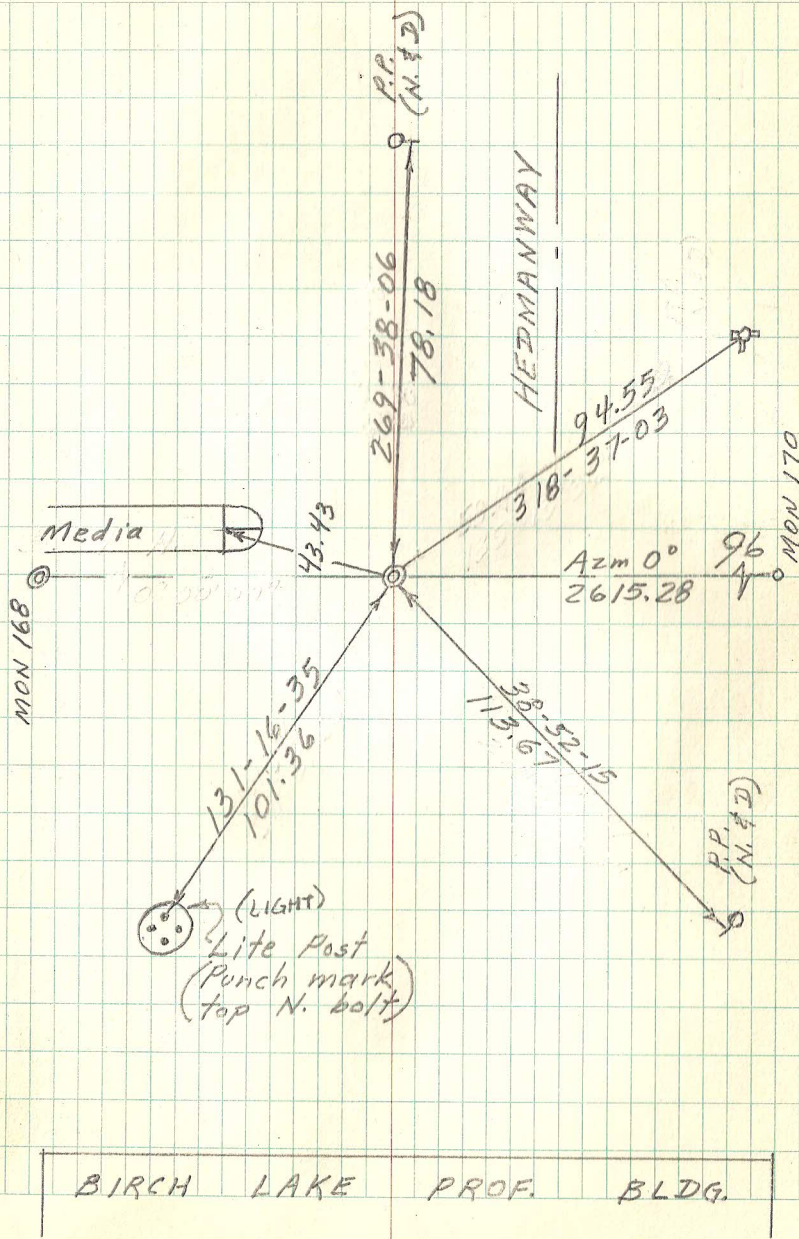 P.P.
(N. & D)
HEDMANWAY
269-38-06
78.18
94.55
318-37-03
Media
43.43
Azm 0°
2615.28
96
MON 170
MON 168
131-16-35
101.36
38-52-15
113.67
P.P.
(N. & D)
(LIGHT)
Lite Post
(Punch mark
top N. bolt)
BIRCH LAKE PROF. BLDG.